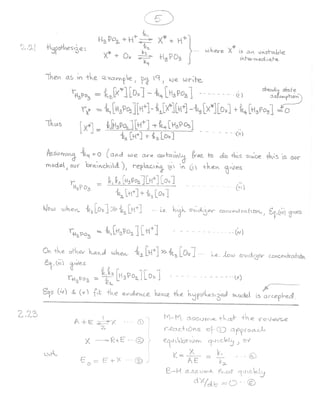 5
2.21 Hypothesize: H₃PO₂ + H⁺ ⇌ X* + H⁺
k₁
k₂
where X* is an unstable intermediate
X* + Ox ⇌ H₃PO₃
k₃
k₄
Then as in the example, pg 19, we write
r_H₃PO₃ = k₃[X*][Ox] - k₄[H₃PO₃] ------- (i)
steady state assumption
r_X* = k₁[H₃PO₂][H⁺] - k₂[X*][H⁺] - k₃[X*][Ox] + k₄[H₃PO₃] = 0
Thus [X*] = (k₁[H₃PO₂][H⁺] + k₄[H₃PO₃]) / (k₂[H⁺] + k₃[Ox]) ------- (ii)
Assuming k₄ = 0 (and we are certainly free to do this since this is our
model, our brainchild), replacing (ii) in (i) then gives
r_H₃PO₃ = k₁k₃[H₃PO₂][H⁺][Ox] / (k₂[H⁺] + k₃[Ox]) ------- (iii)
Now when k₃[Ox] ≫ k₂[H⁺] - ie high oxidizer concentration, Eq.(iii) gives
r_H₃PO₃ = k₁[H₃PO₂][H⁺] ------- (iv)
On the other hand when k₂[H⁺] ≫ k₃[Ox] - i.e. low oxidizer concentration
Eq.(iii) gives
r_H₃PO₃ = k₁k₃/k₂ [H₃PO₂][Ox] ------- (v)
Eqs (iv) & (v) fit the evidence hence the hypothesized model is accepted.
2.23
A + E ⇌ X --- ①
1
2
X → R + E -- ②
with E₀ = E + X -- ③
M-M assume that the reverse
reactions of ① approach
equilibrium quickly, or
K = X / AE = k₁ / k₂
B-H assume that quickly
dX/dt = 0